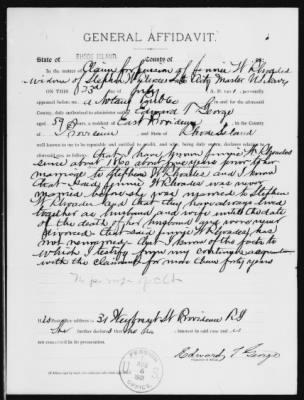 GENERAL AFFIDAVIT.
State of RHODE ISLAND, County of
In the matter of Claim for Pension of Jennie W Rhoades
widow of Stephen W Rhoades late Master U.S. Navy
ON THIS 23d day of July A. D. personally
appeared before me a Notary Public in and for the aforesaid
County, duly authorized to administer oaths Edward T George
aged 59 years, a resident of East Providence
County of Providence and State of Rhode Island
well known to me to be reputable and entitled to credit, and who, being duly sworn, declares in relation to aforesaid
case as follows: that I have known Jennie W Rhoades
since about 1860 about five years prior to her
marriage to Stephen W Rhoades and I know
that said Jennie W Rhoades was never
married before she was married to Stephen
W Rhoades and that they have always lived
together as husband and wife until the date
of the death of her husband and were never
divorced that said Jennie W Rhoades has
not remarried that I know of the facts to
which I testify from my continuous acquaintance
with the claimant for more than forty years
address is 31 Weybosset St Providence R I
further declares that he has no interest in said case and is
not concerned in its prosecution.
Edward T George
PENSION
OFFICE